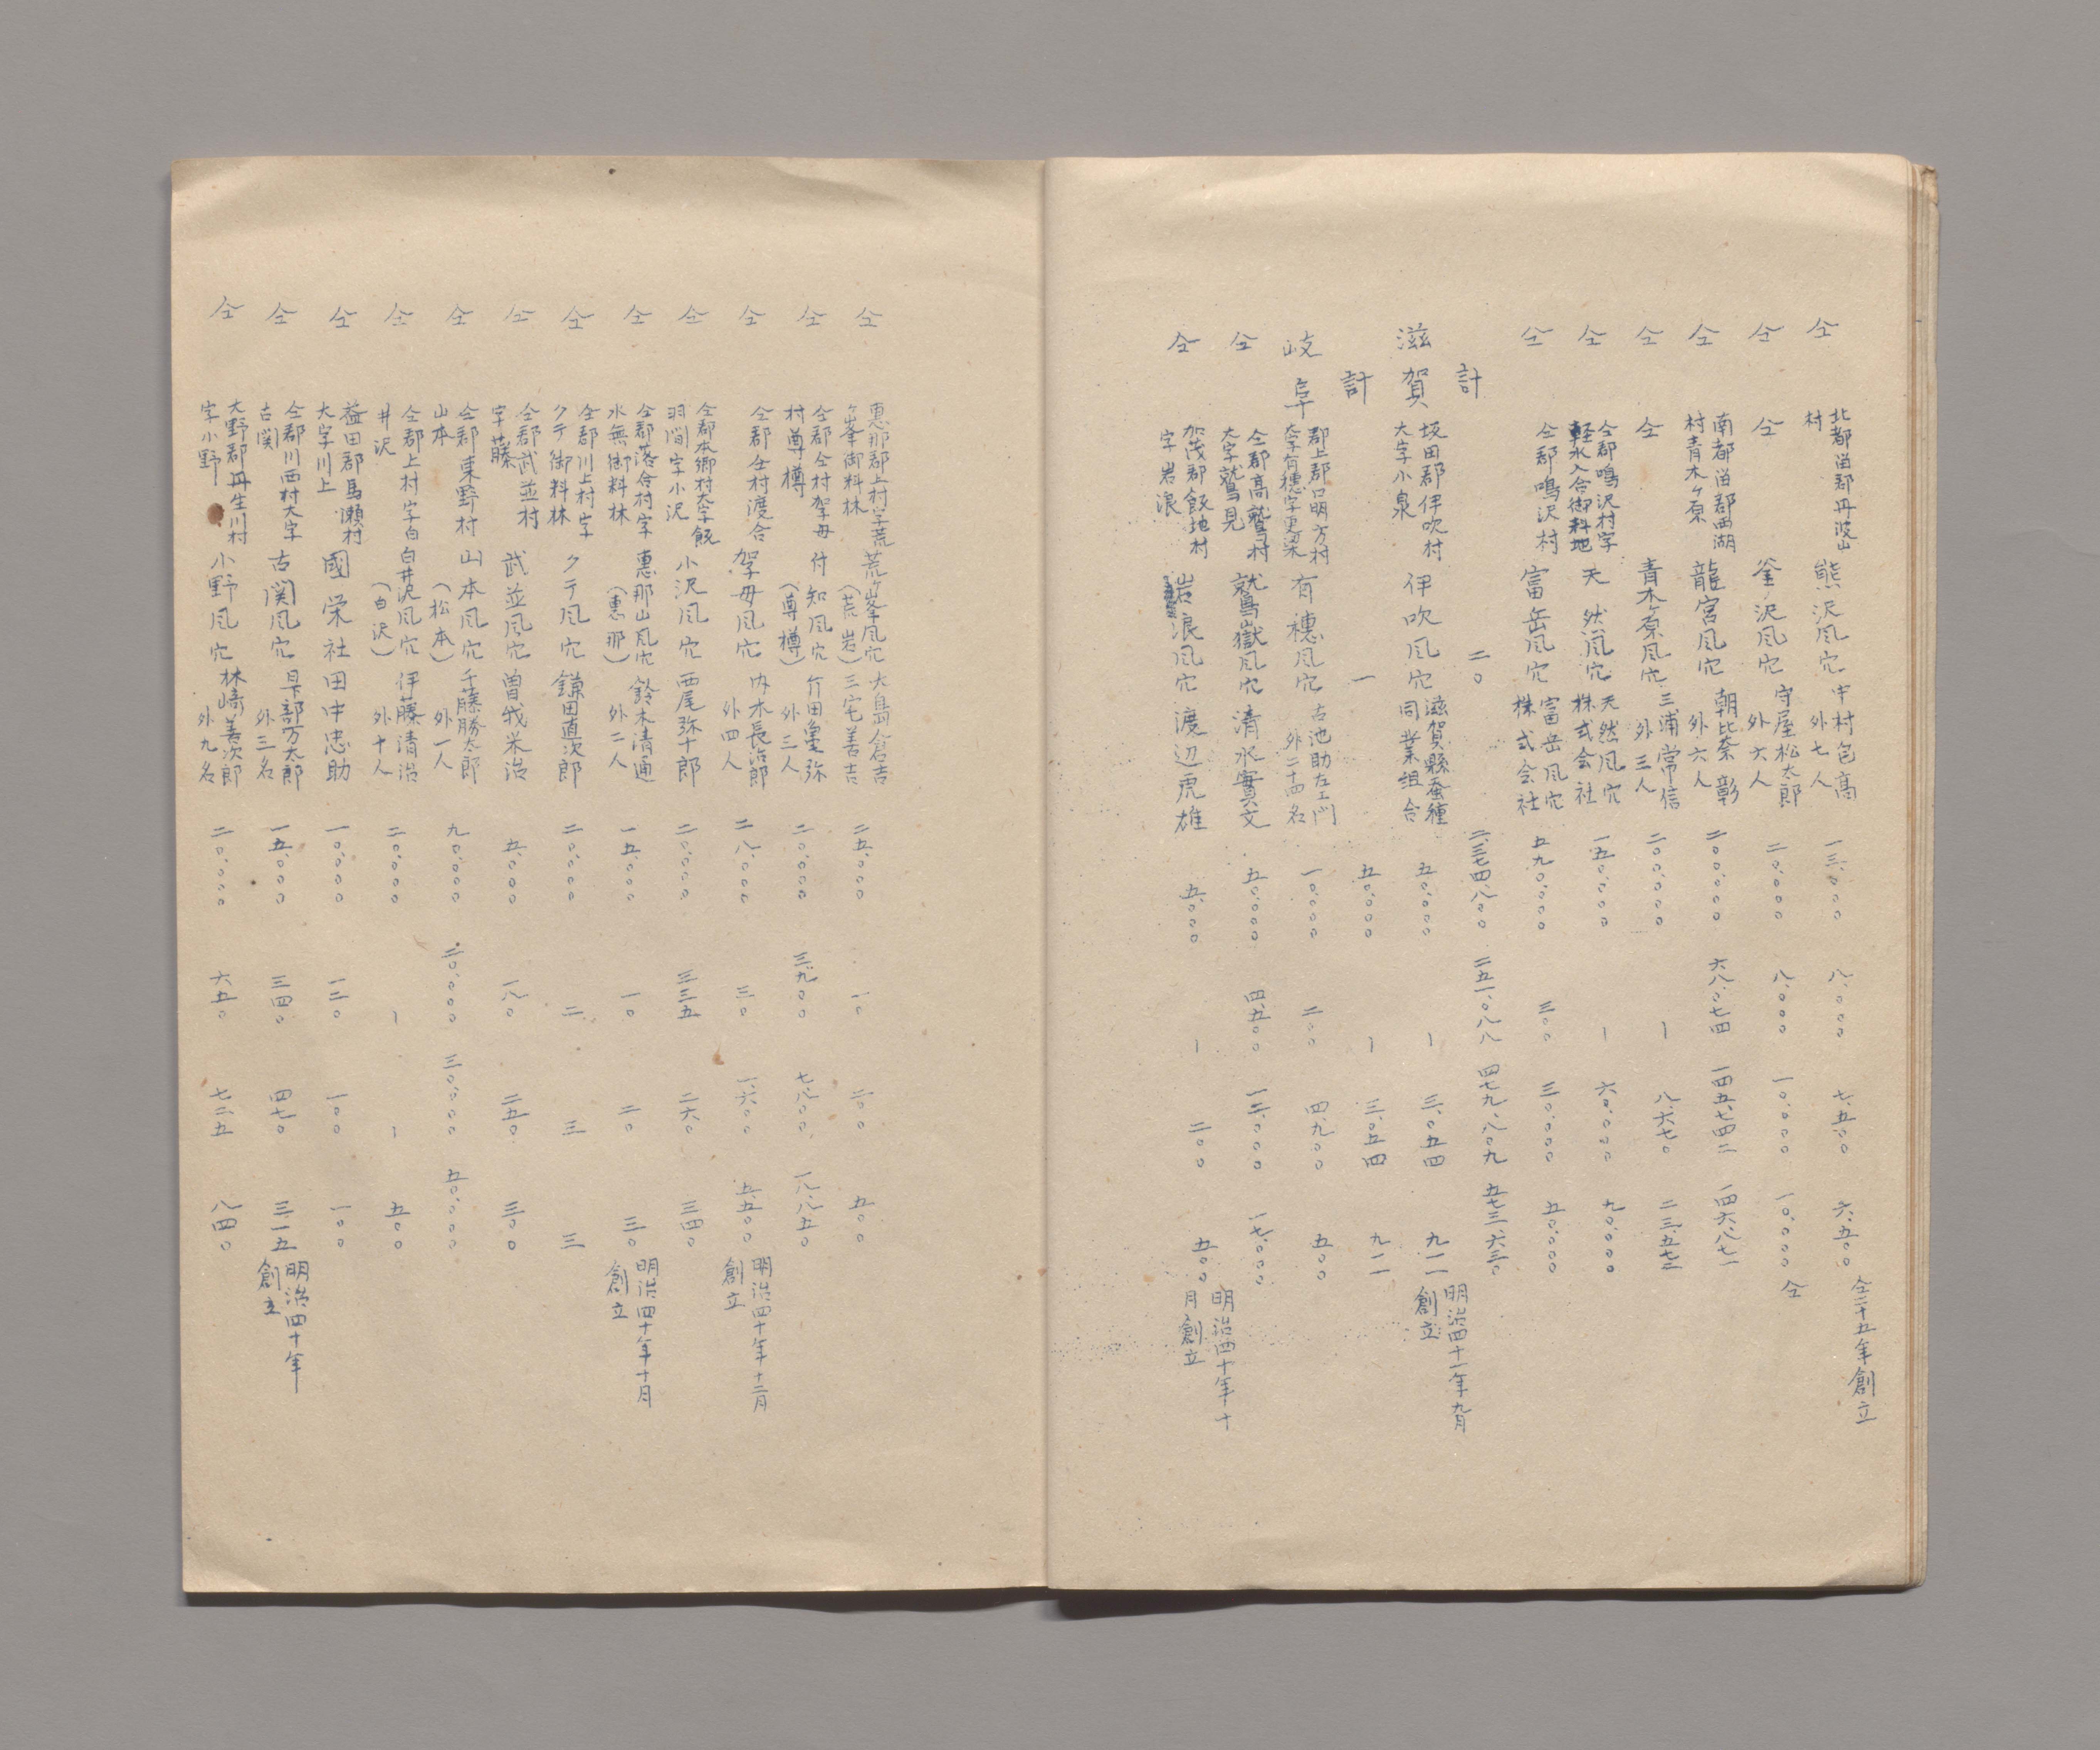 仝 北都留郡丹波山村 熊沢風穴 中村包高 外七人 一三、〇〇〇 八、〇〇〇 七、五〇〇 六、五〇〇 仝三十五年創立
仝 仝 釜ノ沢風穴 守屋松太郎 外六人 二〇、〇〇〇 八、〇〇〇 一〇、〇〇〇 一〇、〇〇〇 仝
仝 南都留郡西湖村青木ヶ原 龍宮風穴 朝比奈彰 外六人 二〇〇、〇〇〇 六八、〇七四 一四五、七四二 一四六、八七一
仝 仝 青木ヶ原風穴 三浦常信 外三人 二〇〇、〇〇〇 ー 八、六七〇 二三、五七二
仝 仝郡鳴沢村字軽水入会御料地 天然風穴 天然風穴株式会社 一五〇、〇〇〇 ー 六〇、〇〇〇 九〇、〇〇〇
仝 仝郡鳴沢村 富岳風穴 富岳風穴株式会社 五九〇、〇〇〇 三〇〇 三〇、〇〇〇 五〇、〇〇〇
計 二〇 二、三七四、八〇〇 二五一、〇八八 四七九、八〇九 五七三、六三〇
滋賀 坂田郡伊吹村大字小泉 伊吹風穴 滋賀縣蚕種同業組合 五〇、〇〇〇 ー 三、〇五四 九一一 明治四十一年九月創立
計 一 五〇、〇〇〇 ー 三、〇五四 九一一
岐阜 郡上郡口明方村大字有穂字更梁 有穗風穴 古池助左エ門 外二十四名 一〇、〇〇〇 二〇〇 四、九〇〇 五〇〇
仝 仝郡高鷲村大字鷲見 鷲嶽風穴 清水實文 五〇、〇〇〇 四、五〇〇 一二、〇〇〇 一七、〇〇〇
仝 加茂郡飯地村字岩浪 岩浪風穴 渡辺虎雄 五、〇〇〇 ー 二〇〇 五〇〇 明治四十年十月創立
仝 惠那郡上村字荒ヶ峯御料林 荒ヶ峯風穴（荒岩） 大島倉吉 三宅善吉 二五、〇〇〇 一〇 二〇〇 五〇〇
仝 仝郡仝村加子母村尊樽 付知風穴（尊樽） 竹田亀弥 外三人 二〇、〇〇〇 三、九〇〇 七、八〇〇 一八、八五〇
仝 仝郡仝村渡合 加子母風穴 内木長治郎 外四人 二八、〇〇〇 三〇 一、六〇〇 五、五〇〇 明治四十年十二月創立
仝 仝郡本郷村大字飯羽間字小沢 小沢風穴 西尾弥十郎 二〇、〇〇〇 三三五 二六〇 三四〇
仝 仝郡落合村字水無御料林 惠那山風穴（惠那） 鈴木清通 外二人 一五、〇〇〇 一〇 二〇 三〇 明治四十年十月創立
仝 仝郡川上村字クテ御料林 クテ風穴 鎌田直次郎 二〇、〇〇〇 二 三 三
仝 仝郡武並村字藤 武並風穴 曽我米治 五、〇〇〇 一八〇 二五〇 三〇〇
仝 仝郡東野村山本 山本風穴（松本） 千藤勝太郎 外一人 九〇、〇〇〇 二〇、〇〇〇 三〇、〇〇〇 五〇、〇〇〇
仝 仝郡上村字白井沢 白井沢風穴（白沢） 伊藤清治 外十人 二〇、〇〇〇 ー ー 五〇〇
仝 益田郡馬瀬村大字川上 國栄社 田中忠助 一〇、〇〇〇 一二〇 一〇〇 一〇〇
仝 仝郡川西村大字古関 古関風穴 日下部万太郎 外三名 一五、〇〇〇 三四〇 四七〇 三、一五 明治四十年創立
仝 大野郡丹生川村字小野 小野風穴 林﨑善次郎 外九名 二〇、〇〇〇 六五〇 七二五 八四〇